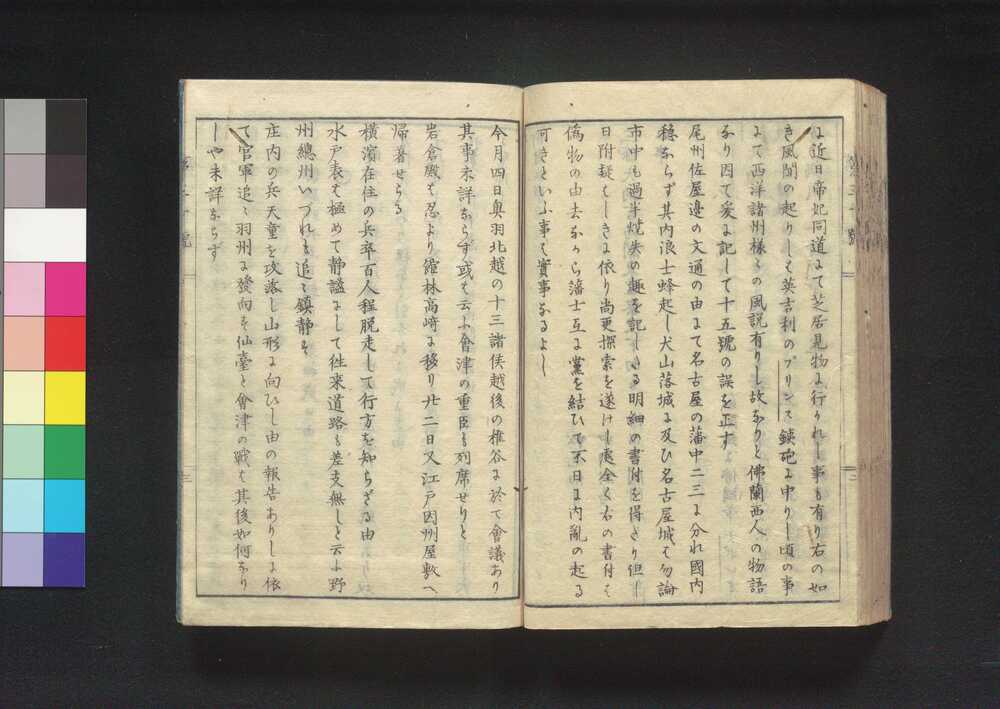 に近日帝妃同道にて芝居見物に行かれし事も有り右の如
き風聞の起りしは英吉利のプリンス鉄砲に中りし頃の事
にて西洋諸州様々の風説有りし故なりと佛蘭西人の物語
なり因て爰に記して十五號の誤を正す
尾州佐屋邊の文通の由にて名古屋の藩中二三に分れ國内
穏ならず其内浪士蜂起し犬山落城に及ひ名古屋城は勿論
市中も過半焼失の趣を記したる明細の書付を得たり但し
日附疑はしきに依り尚更探索を遂けし處全く右の書付は
偽物の由去なから藩士互に黨を結ひて不日に内亂の起る
可きといふ事は實事なるよし
今月四日奥羽北越の十三諸侯越後の椎谷に於て會議あり
其事未詳ならず或は云ふ會津の重臣も列席せりと
岩倉殿は忍より館林高﨑に移り廿二日又江戸因州屋敷へ
帰着せらる
横濱在住の兵卒百人程脱走して行方を知らざる由
水戸表は極めて静謐にして往来道路も差支無しと云ふ野
州總州いづれも追々鎮静す
庄内の兵天童を攻落し山形に向ひし由の報告ありしに依
て官軍追々羽州に發向す仙臺と會津の戦は其後如何なり
しや未詳ならず